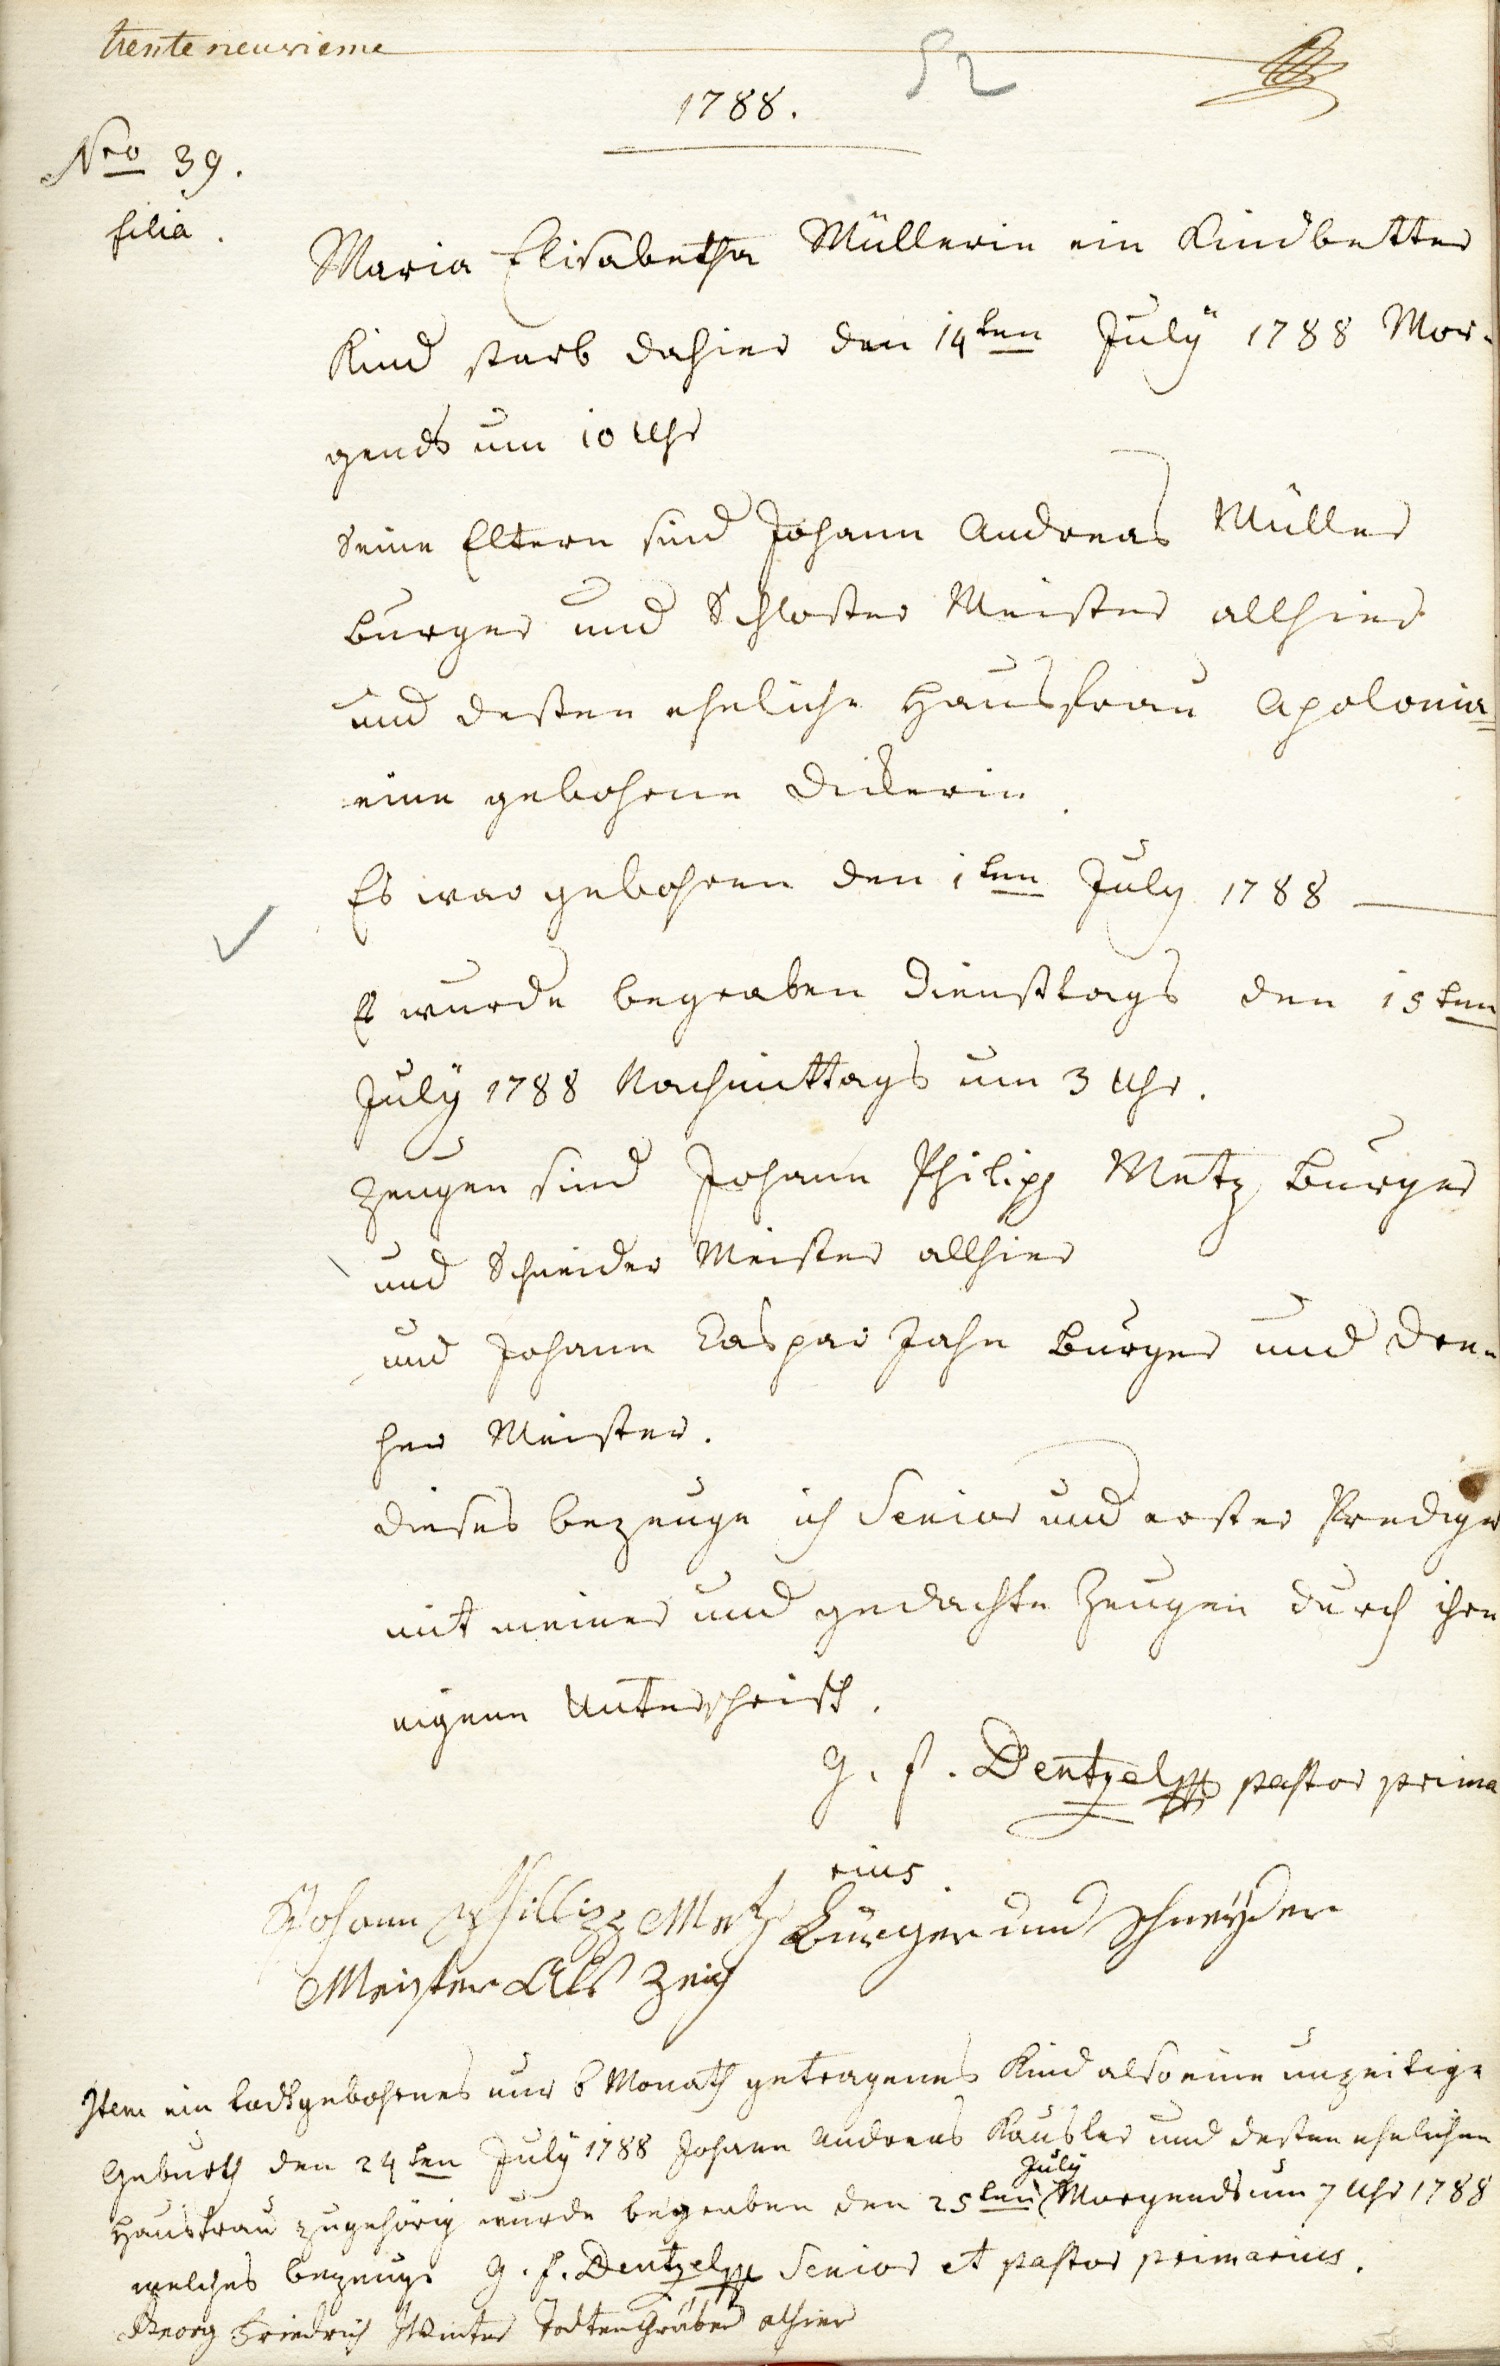 trente neuvieme
52
1788.
Nro 39.
filia.
Maria Elisabetha Müllerin ein Kindbetter
Kind starb dahier den 14ten July 1788 Mor-
gends um 10 Uhr
Seine Eltern sind Johann Andreas Müller
burger und Schlosser Meister allhier
und dessen eheliche Hausfrau Apolonia
eine gebohrne Dickerin.
Es war gebohren den 1ten July 1788
Es wurde begraben Dienstags den 15ten
July 1788 Nachmittags um 3 Uhr.
Zeugen sind Johann Philipp Metz burger
und Schneider Meister allhier
und Johann Caspar Jahn burger und Dre-
her Meister.
dieses bezeuge ich Senior und erster Prediger
mit meiner und gedachte Zeugen durch ihre
eigene Unterschrift.
G. F. Dentzel pastor prima
rius.
Johann Phillipp Metz Bürger und schneyder
Meister Als Zeig
Item ein todtgebohrnes nur 6 Monath getragenes Kind also eine unzeitige
Geburth den 24ten July 1788 Johann Andreas Kausler und dessen ehelichen
Hausfrau zugehörig wurde begraben den 25ten July Morgends um 7 Uhr 1788
welches bezeugt G. F. Dentzel Senior et pastor primarius.
Georg Friedrich Winter Todtengräber alhier